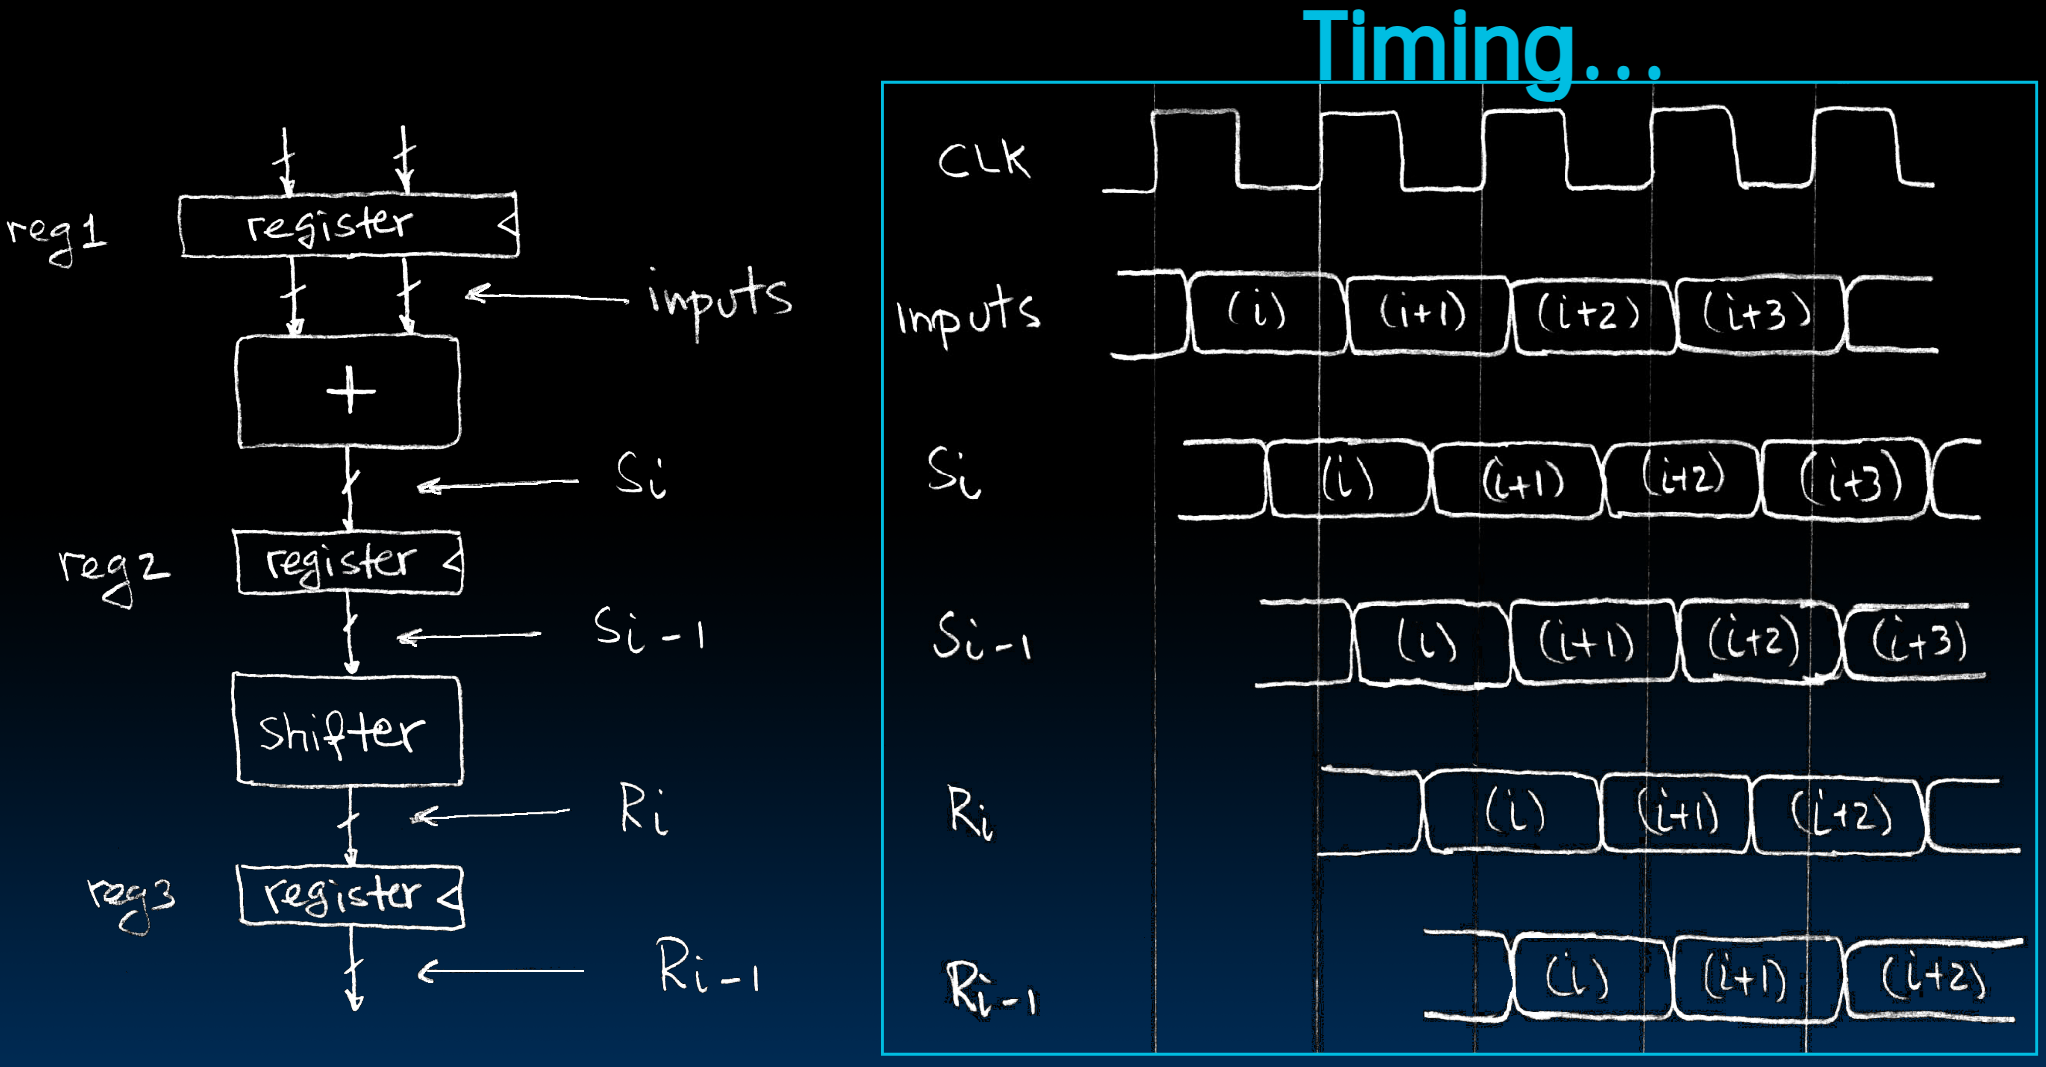 Timing...
reg1
register
inputs
+
Si
reg2
register
Si-1
shifter
Ri
reg3
register
Ri-1
CLK
Inputs
(i)
(i+1)
(i+2)
(i+3)
Si
(i)
(i+1)
(i+2)
(i+3)
Si-1
(i)
(i+1)
(i+2)
(i+3)
Ri
(i)
(i+1)
(i+2)
Ri-1
(i)
(i+1)
(i+2)